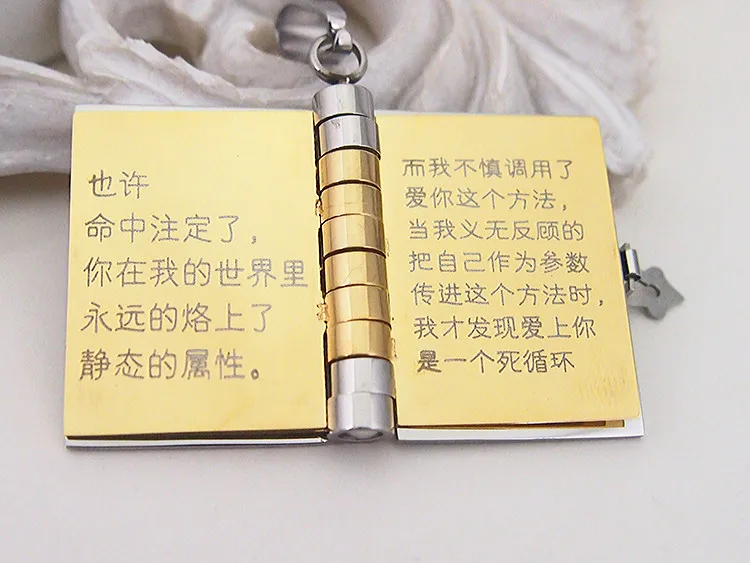 也许
命中注定了，
你在我的世界里
永远的烙上了
静态的属性。
而我不慎调用了
爱你这个方法，
当我义无反顾的
把自己作为参数
传进这个方法时，
我才发现爱上你
是一个死循环